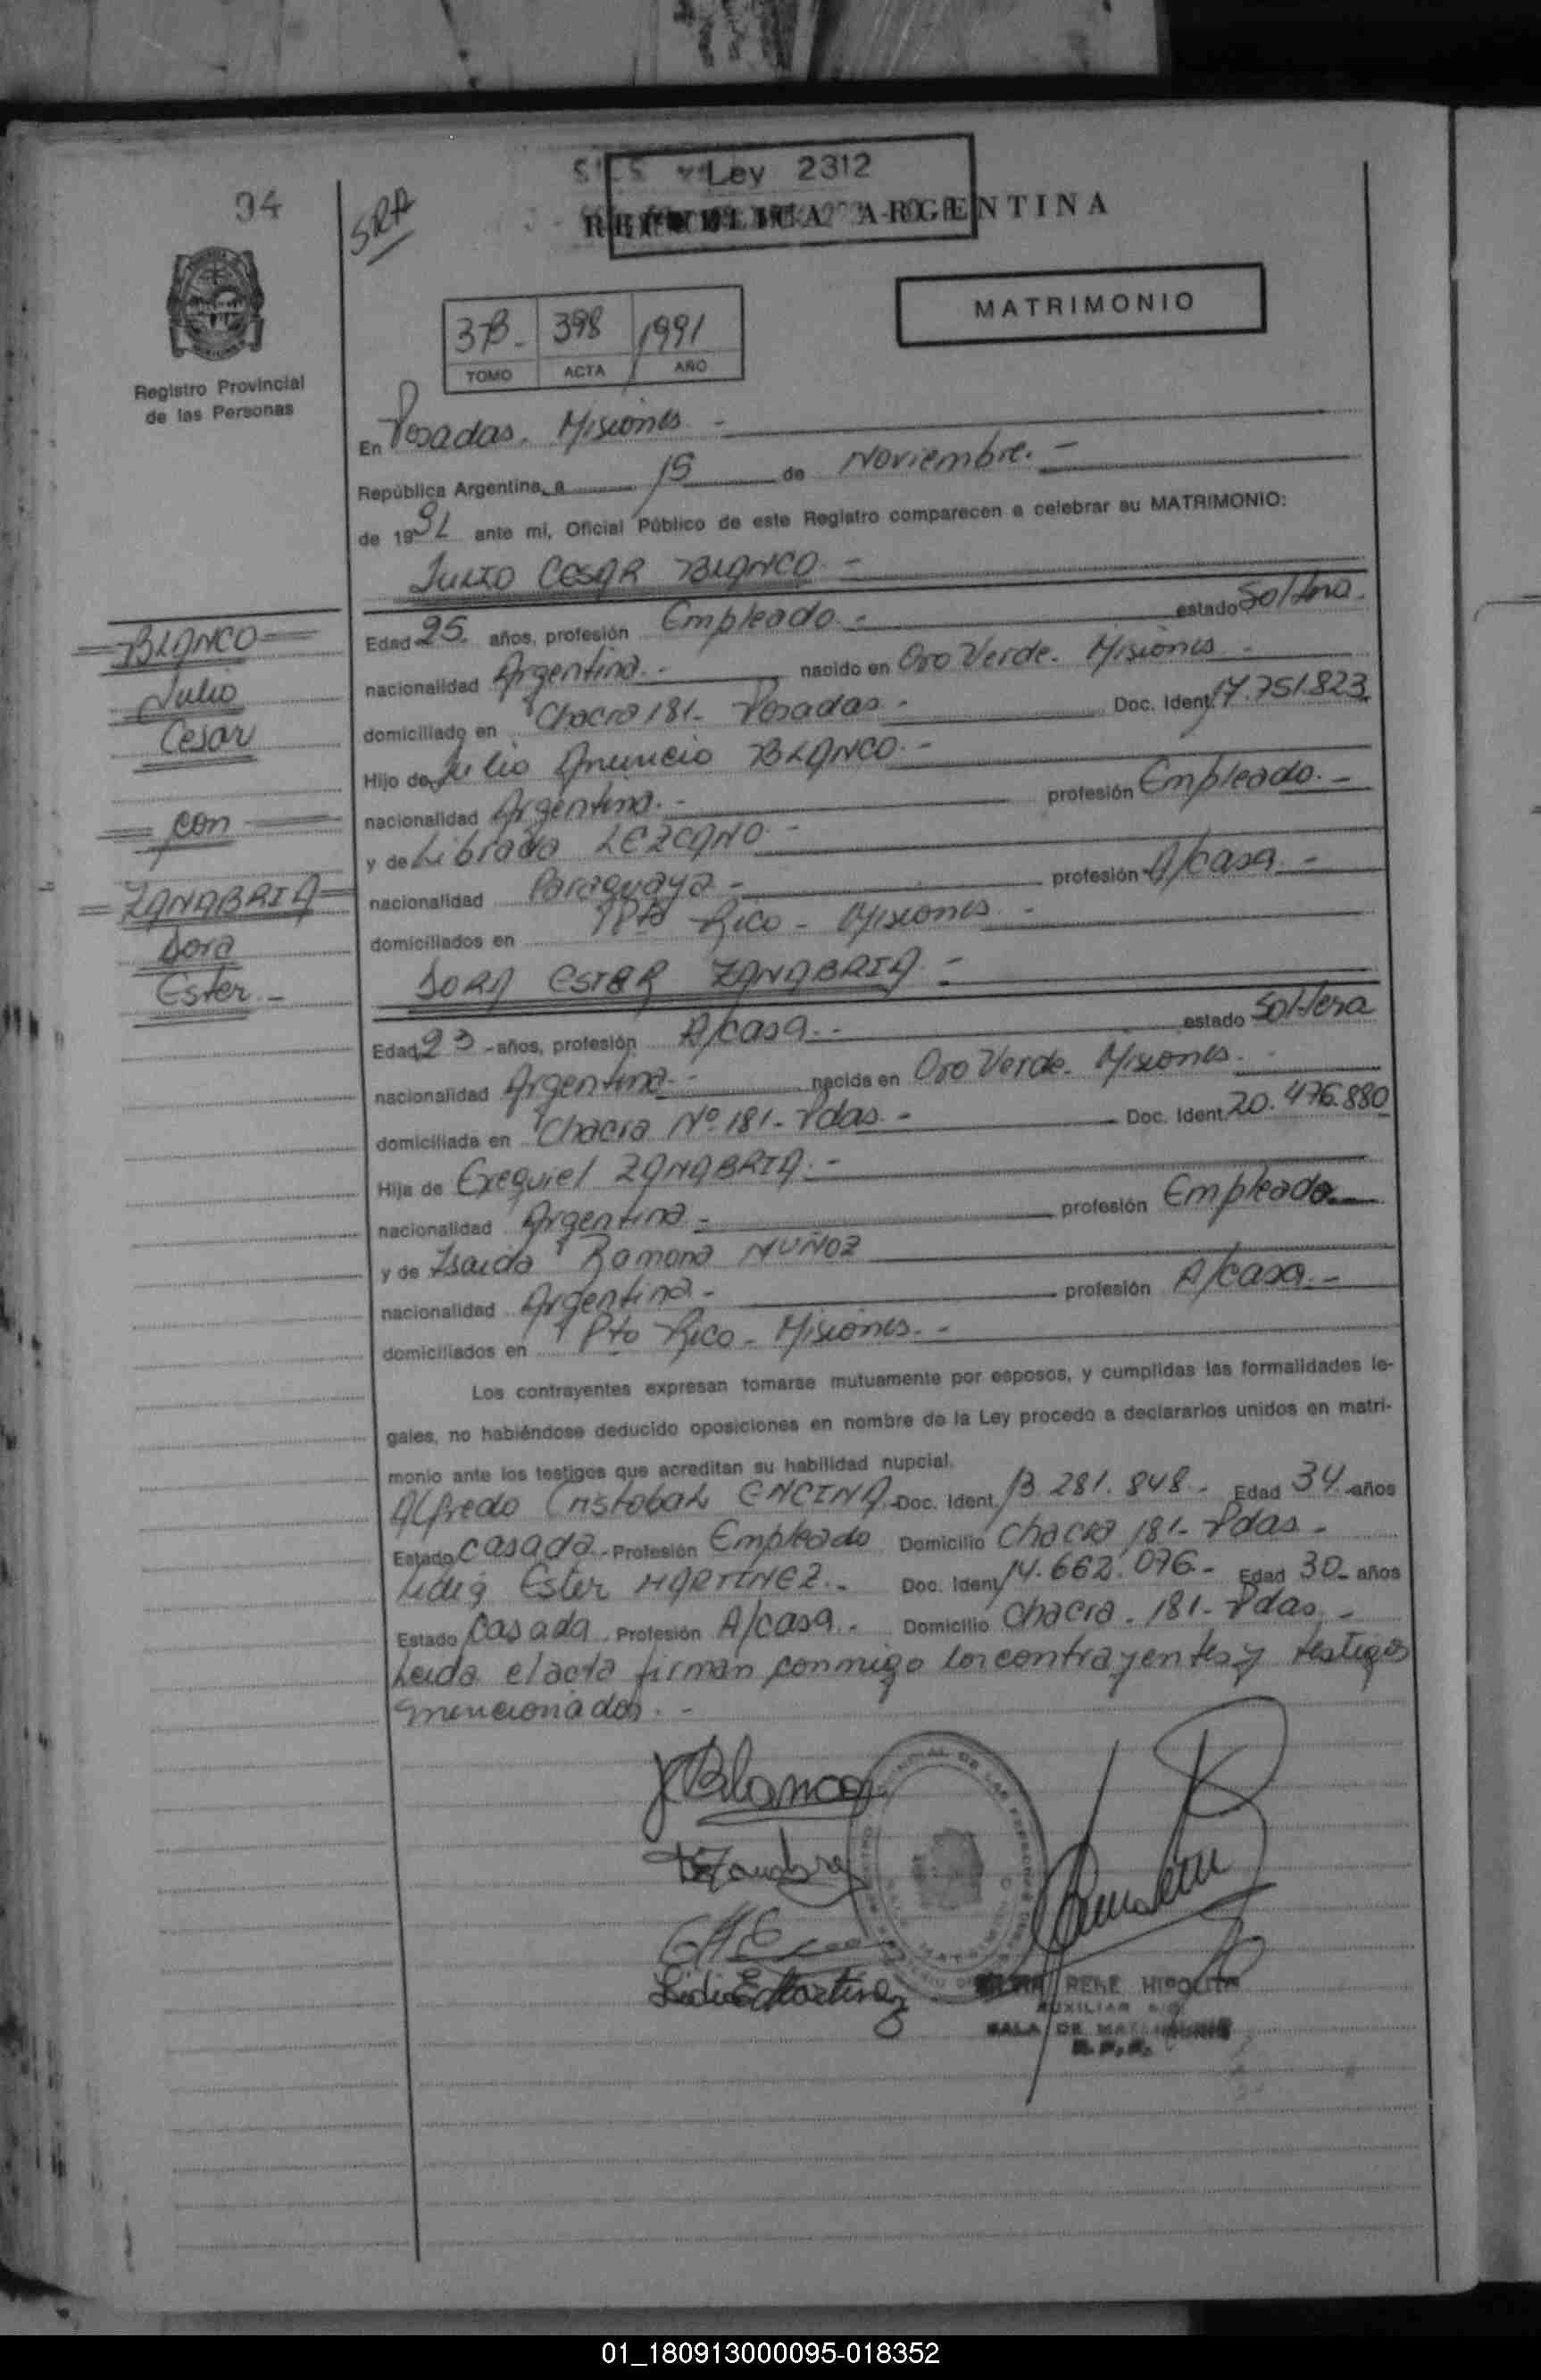 Ley 2312
94
SRA
REPUBLICA ARGENTINA
MATRIMONIO
3B- 398 1991
TOMO ACTA AÑO
Registro Provincial
de las Personas
En Posadas. Misiones -
República Argentina, a 15 de Noviembre. -
de 1991 ante mi, Oficial Público de este Registro comparecen a celebrar su MATRIMONIO:
JULIO CESAR BLANCO -
Edad 25 años, profesión Empleado - estado Soltero
nacionalidad Argentina - nacido en Oro Verde. Misiones -
domiciliado en Chacra 181- Posadas - Doc. Ident. 17.751.823
Hijo de Julio Anuncio BLANCO. -
nacionalidad Argentina. - profesión Empleado. -
y de Librada LEZCANO -
nacionalidad Paraguaya - profesión A/casa -
domiciliados en Pto Rico - Misiones -
DORA ESTER ZANABRIA -
Edad 23 - años, profesión A/casa - estado Soltera
nacionalidad Argentina - nacida en Oro Verde. Misiones -
domiciliada en Chacra Nº 181- Pdas - Doc. Ident. 20.476.880
Hija de Exequiel ZANABRIA. -
nacionalidad Argentina - profesión Empleado
y de Ramona MUÑOZ
nacionalidad Argentina - profesión A/casa -
domiciliados en Pto Rico - Misiones. -
BLANCO
Julio
Cesar
con
ZANABRIA
Dora
Ester -
Los contrayentes expresan tomarse mutuamente por esposos, y cumplidas las formalidades le-
gales, no habiéndose deducido oposiciones en nombre de la Ley procedo a declararlos unidos en matri-
monio ante los testigos que acreditan su habilidad nupcial.
Alfredo Cristobal ENCINA Doc. Ident. 13.281.848 - Edad 34 años
Estado Casado - Profesión Empleado Domicilio Chacra 181- Pdas -
Lidia Ester MARTINEZ. - Doc. Ident. 14.662.076 - Edad 30 - años
Estado Casada Profesión A/casa - Domicilio Chacra - 181 - Pdas -
Leida el acta firman conmigo los contrayentes y testigos
mencionados. -
JCBlanco
Lidia E Martinez
RENE HIPOLITO
AUXILIAR
SALA DE MATRIMONIO
R.P.P.
01_180913000095-018352